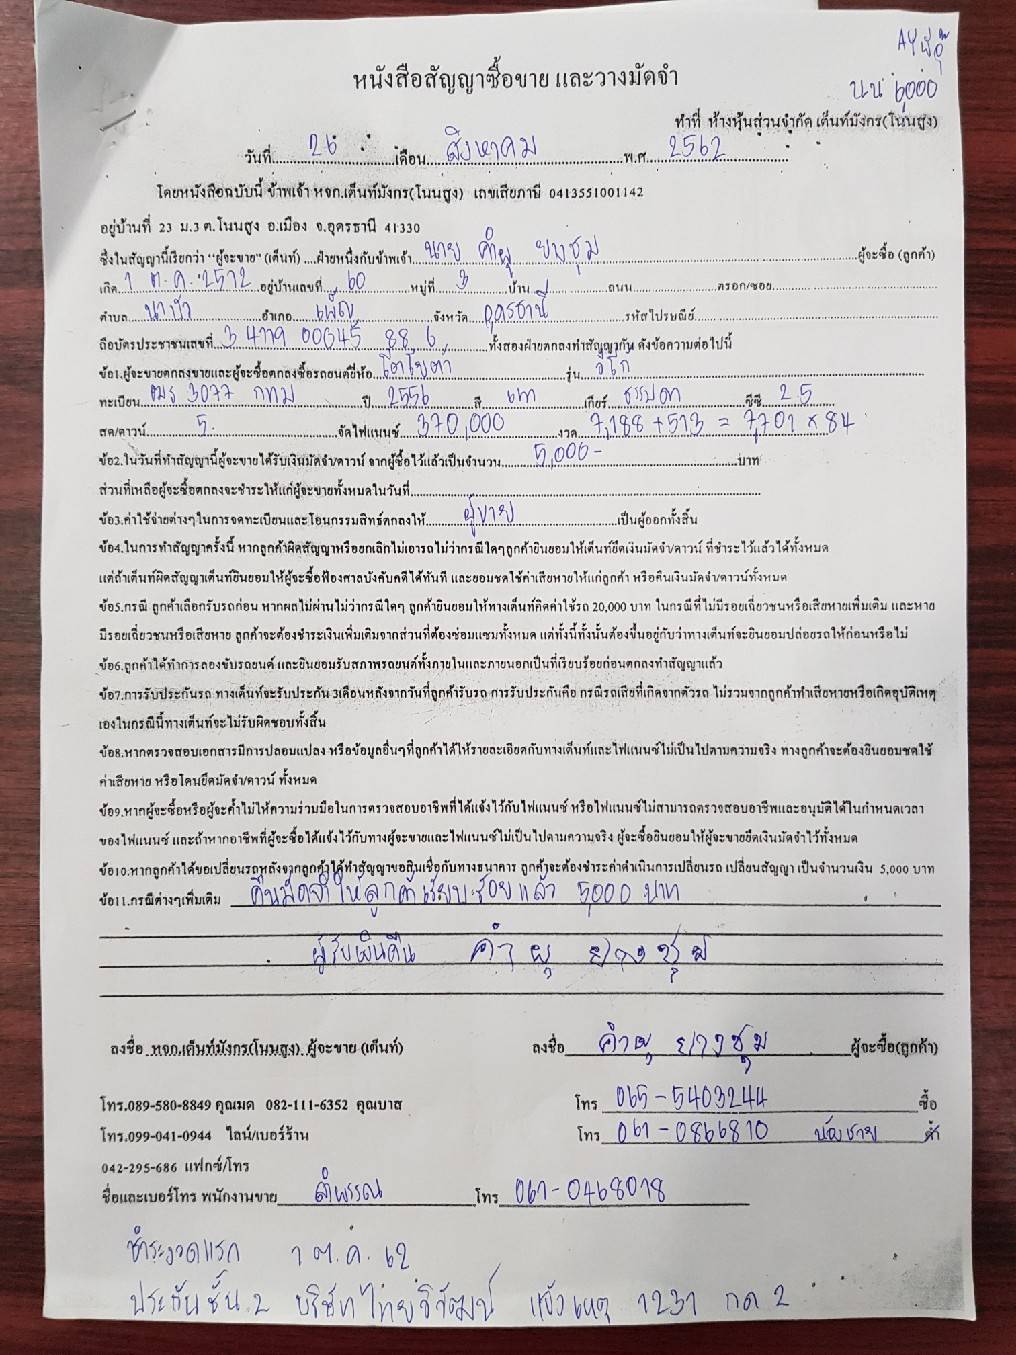 AY พี่อุ๊
นน 6000
หนังสือสัญญาซื้อขาย และวางมัดจำ
ทำที่ ห้างหุ้นส่วนจำกัด เต็นท์มังกร(โนนสูง)
วันที่ 26 เดือน สิงหาคม พ.ศ. 2562
โดยหนังสือฉบับนี้ ข้าพเจ้า หจก.เต็นท์มังกร(โนนสูง) เลขเสียภาษี 0413551001142
อยู่บ้านที่ 23 ม.3 ต.โนนสูง อ.เมือง จ.อุดรธานี 41330
ซึ่งในสัญญานี้เรียกว่า "ผู้จะขาย" (เต็นท์) ....ฝ่ายหนึ่งกับข้าพเจ้า นาย คำผุ ยางชุม ผู้จะซื้อ (ลูกค้า)
เกิด 1 ต.ค. 2512 อยู่บ้านเลขที่ 60 หมู่ที่ 3 บ้าน ถนน ตรอก/ซอย
ตำบล นาบัว อำเภอ เพ็ญ จังหวัด อุดรธานี รหัสไปรษณีย์
ถือบัตรประชาชนเลขที่ 3 4119 00645 88 6 ทั้งสองฝ่ายตกลงทำสัญญากัน ดังข้อความต่อไปนี้
ข้อ1.ผู้จะขายตกลงขายและผู้จะซื้อตกลงซื้อรถยนต์ยี่ห้อ โตโยต้า รุ่น วีโก้
ทะเบียน 3077 กทม ปี 2556 สี เทา เกียร์ ธรรมดา ซีซี 25
สด/ดาวน์ 5. จัดไฟแนนซ์ 370,000 งวด 7,188 + 513 = 7,701 × 84
ข้อ2.ในวันที่ทำสัญญานี้ผู้จะขายได้รับเงินมัดจำ/ดาวน์ จากผู้ซื้อไว้แล้วเป็นจำนวน 5,000- บาท
ส่วนที่เหลือผู้จะซื้อตกลงจะชำระให้แก่ผู้จะขายทั้งหมดในวันที่
ข้อ3.ค่าใช้จ่ายต่างๆในการจดทะเบียนและโอนกรรมสิทธิ์ตกลงให้ ผู้ขาย เป็นผู้ออกทั้งสิ้น
ข้อ4.ในการทำสัญญาครั้งนี้ หากลูกค้าผิดสัญญาหรือยกเลิกไม่เอารถไม่ว่ากรณีใดๆลูกค้ายินยอมให้เต็นท์ยึดเงินมัดจำ/ดาวน์ ที่ชำระไว้แล้วได้ทั้งหมด
แต่ถ้าเต็นท์ผิดสัญญาเต็นท์ยินยอมให้ผู้จะซื้อฟ้องศาลบังคับคดีได้ทันที และยอมชดใช้ค่าเสียหายให้แก่ลูกค้า หรือคืนเงินมัดจำ/ดาวน์ทั้งหมด
ข้อ5.กรณี ลูกค้าเลือกรับรถก่อน หากผลไม่ผ่านไม่ว่ากรณีใดๆ ลูกค้ายินยอมให้ทางเต็นท์คิดค่าใช้รถ 20,000 บาท ในกรณีที่ไม่มีรอยเฉี่ยวชนหรือเสียหายเพิ่มเติม และหาย
มีรอยเฉี่ยวชนหรือเสียหาย ลูกค้าจะต้องชำระเงินเพิ่มเติมจากส่วนที่ต้องซ่อมแซมทั้งหมด แต่ทั้งนี้ทั้งนั้นต้องขึ้นอยู่กับว่าทางเต็นท์จะยินยอมปล่อยรถให้ก่อนหรือไม่
ข้อ6.ลูกค้าได้ทำการลองขับรถยนต์ และยินยอมรับสภาพรถยนต์ทั้งภายในและภายนอกเป็นที่เรียบร้อยก่อนตกลงทำสัญญาแล้ว
ข้อ7.การรับประกันรถ ทางเต็นท์จะรับประกัน 3เดือนหลังจากวันที่ลูกค้ารับรถ การรับประกันคือ กรณีรถเสียที่เกิดจากตัวรถ ไม่รวมจากลูกค้าทำเสียหายหรือเกิดอุบัติเหตุ
เองในกรณีนี้ทางเต็นท์จะไม่รับผิดชอบทั้งสิ้น
ข้อ8.หากตรวจสอบเอกสารมีการปลอมแปลง หรือข้อมูลอื่นๆที่ลูกค้าได้ให้รายละเอียดกับทางเต็นท์และไฟแนนซ์ไม่เป็นไปตามความจริง ทางลูกค้าจะต้องยินยอมชดใช้
ค่าเสียหาย หรือโดนยึดมัดจำ/ดาวน์ ทั้งหมด
ข้อ9.หากผู้จะซื้อหรือผู้จะค้ำไม่ให้ความร่วมมือในการตรวจสอบอาชีพที่ได้แจ้งไว้กับไฟแนนซ์ หรือไฟแนนซ์ไม่สามารถตรวจสอบอาชีพและอนุมัติได้ในกำหนดเวลา
ของไฟแนนซ์ และถ้าหากอาชีพที่ผู้จะซื้อได้แจ้งไว้กับทางผู้จะขายและไฟแนนซ์ไม่เป็นไปตามความจริง ผู้จะซื้อยินยอมให้ผู้จะขายยึดเงินมัดจำไว้ทั้งหมด
ข้อ10.หากลูกค้าได้ขอเปลี่ยนรถหลังจากลูกค้าได้ทำสัญญาขอสินเชื่อกับทางธนาคาร ลูกค้าจะต้องชำระค่าดำเนินการเปลี่ยนรถ เปลี่ยนสัญญา เป็นจำนวนเงิน 5,000 บาท
ข้อ11.กรณีต่างๆเพิ่มเติม คืนมัดจำให้ลูกค้าเรียบร้อยแล้ว 5,000 บาท
ผู้รับเงินคืน คำผุ ยางชุม
ลงชื่อ หจก.เต็นท์มังกร(โนนสูง) ผู้จะขาย (เต็นท์) ลงชื่อ คำผุ ยางชุม ผู้จะซื้อ(ลูกค้า)
โทร.089-580-8849 คุณมด 082-111-6352 คุณบาส โทร 065-5403244 ซื้อ
โทร.099-041-0944 ไลน์/เบอร์ร้าน โทร 061-0866810 น้องชาย ค้ำ
042-295-686 แฟกซ์/โทร
ชื่อและเบอร์โทร พนักงานขาย ลำพรรณ โทร 061-0468018
ชำระงวดแรก 1 ต.ค. 62
ประกันชั้น 2 บริษัทไทยวิวัฒน์ แจ้งเหตุ 1231 กด 2